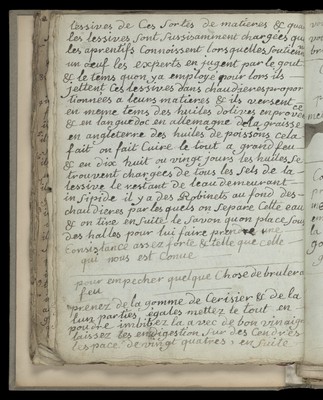 lessives de Ces sortes de matieres & qua
les lessives sont sussisamment chargées qu
les aprentifs connoissent lorsquelles soutienn
un oeuf les experts en jugent par le gout
& le tems quon ya employé pour lors ils
jettent Ces lessives dans chaudieres propor
tionnées a leurs matieres & ils versent
en meme tems des huiles dolives en prove ce
& en languedoc en allemagne de la graisse
en angleterre des huiles de poissons cela
fait on fait Cuire le tout a grand feu
& en dix huit ou vingt jours les huiles se
trouvent chargées de tous les sels de la
lessive le restant de leau demeurant
insipide il y a des Robinets au fond des
chaudieres par les quels on separe Cette eau
& on tire ensuite le savon quon place sous
des halles pour lui faire prendre une
Consistance assez forte & telle que celle
qui nous est Connue
pour empecher quelque Chose de bruler a
feu
prenez de la gomme de Cerisier & de la
lun parties egales mettez le tout en
poudre imbibez la avec de bon vinaigr
laissez les en digestion sur des Cendres
lespace de vingt quatres, ensuite